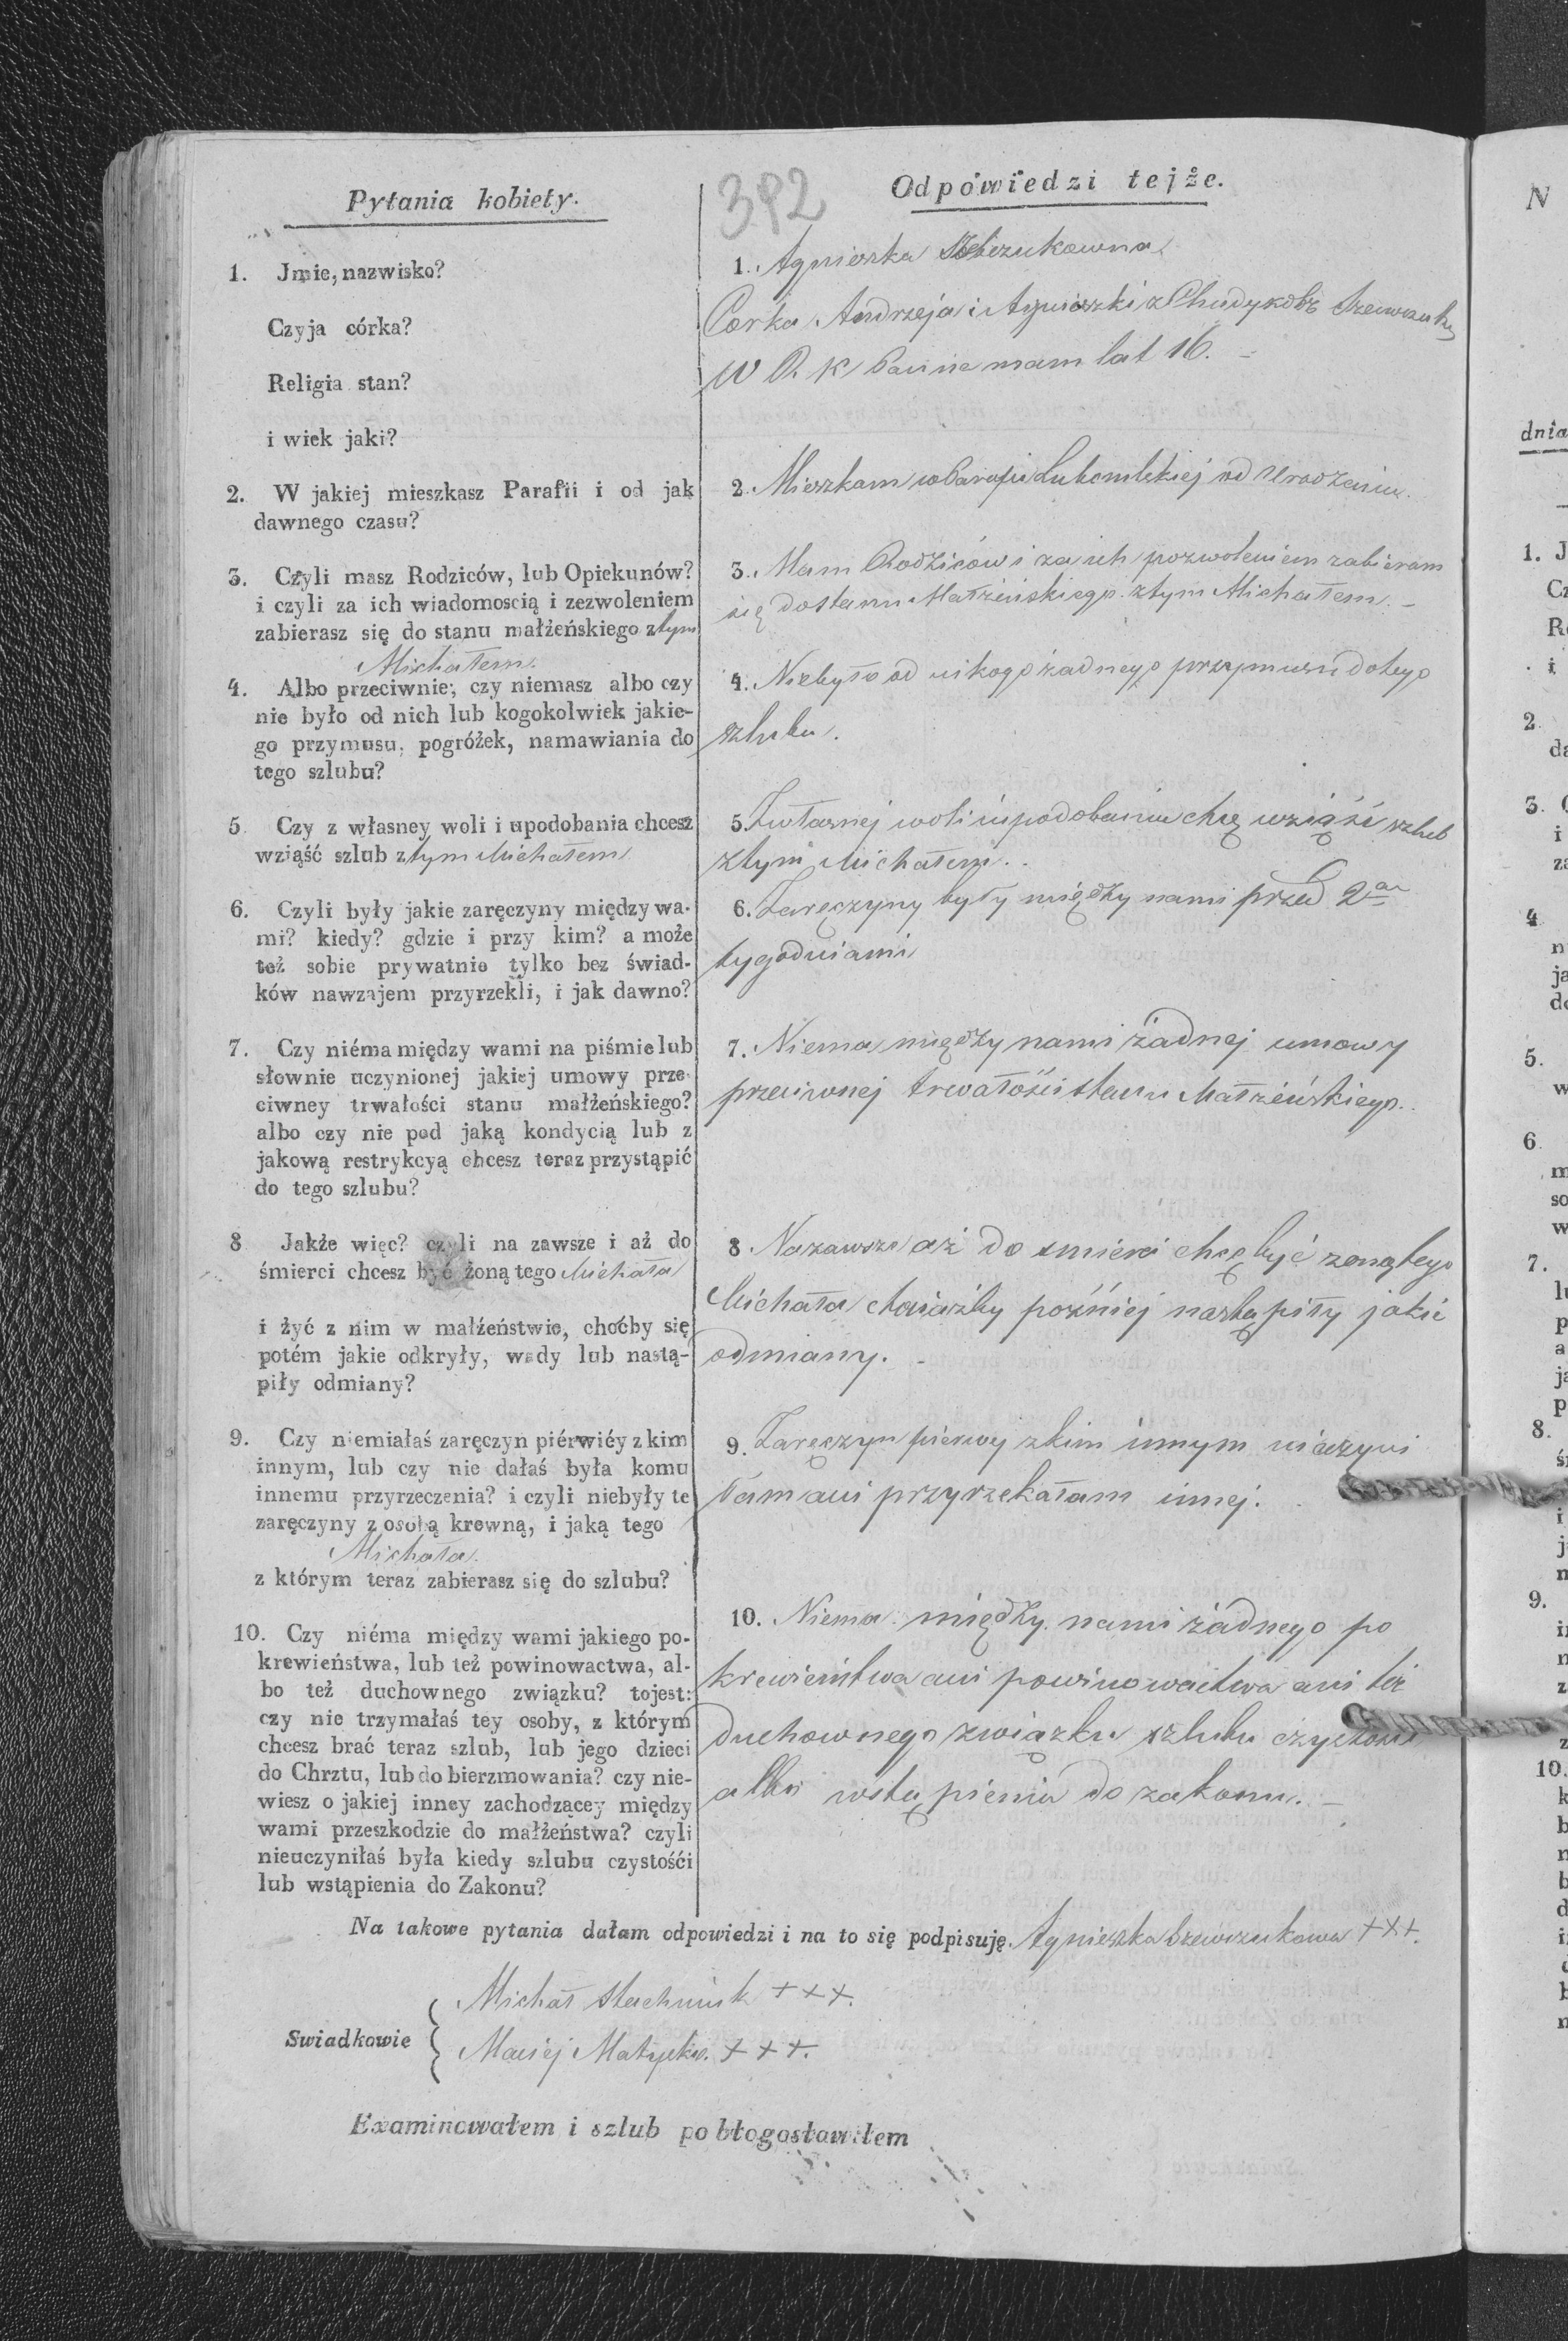 392
Pytania kobiety.
1. Jmie, nazwisko?
Czyja córka?
Religia stan?
i wiek jaki?
2. W jakiej mieszkasz Parafii i od jak
dawnego czasu?
3. Czyli masz Rodziców, lub Opiekunów?
i czyli za ich wiadomoscią i zezwoleniem
zabierasz się do stanu małżeńskiego z tym
Michałem.
4. Albo przeciwnie; czy niemasz albo czy
nie było od nich lub kogokolwiek jakie-
go przymusu, pogróżek, namawiania do
tego szlubu?
5 Czy z własney woli i upodobania chcesz
wziąść szlub z tym Michałem
6. Czyli były jakie zaręczyny między wa-
mi? kiedy? gdzie i przy kim? a może
też sobie prywatnie tylko bez świad-
ków nawzajem przyrzekli, i jak dawno?
7. Czy niéma między wami na piśmie lub
słownie uczynionej jakiej umowy prze-
ciwney trwałości stanu małżeńskiego?
albo czy nie pod jaką kondycią lub z
jakową restrykcyą chcesz teraz przystąpić
do tego szlubu?
8 Jakże więc? czyli na zawsze i aż do
śmierci chcesz być żoną tego Michała
i żyć z nim w małżeństwie, choćby się
potém jakie odkryły, wady lub nastą-
piły odmiany?
9. Czy niemiałaś zaręczyn piérwiéy z kim
innym, lub czy nie dałaś była komu
innemu przyrzeczenia? i czyli niebyły te
zaręczyny z osobą krewną, i jaką tego
Michała.
z którym teraz zabierasz się do szlubu?
10. Czy niéma między wami jakiego po-
krewieństwa, lub też powinowactwa, al-
bo też duchownego związku? tojest:
czy nie trzymałaś tey osoby, z którym
chcesz brać teraz szlub, lub jego dzieci
do Chrztu, lub do bierzmowania? czy nie-
wiesz o jakiej inney zachodzącey między
wami przeszkodzie do małżeństwa? czyli
nieuczyniłaś była kiedy szlubu czystośći
lub wstąpienia do Zakonu?
Odpowiedzi tejże.
1. Agnieszka
Corka Andrzeja i Agnieszki z
W R. K Panna mam lat 16. -
2. Mieszkam w Parafii Lubomlskiej od Urodzenia.
3. Mam Rodziców i za ich pozwoleniem zabieram
się do stanu Małżeńskiego z tym Michałem. -
4. Niebyło od nikogo żadnego przymusu do tego
szlubu.
5. Z własnej woli i upodobania chcę wziąść szlub
z tym Michałem.
6. Zaręczyny były między nami przed 2a
tygodniami
7. Niema między nami żadnej umowy
przeciwnej trwałości stanu Małżeńskiego.
8. Nazawsze aż do smierci chcę być zoną tego
Michała chociażby poźniej nastąpiły jakie
odmiany. -
9. Zaręczyn pierwej z kim innym nieczyni
łam ani przyrzekałam innej.
10. Niema między nami żadnego po
krewieństwa ani powinowactwa ani też
duchownego związku szlubu czystości
albo wstąpienia do zakonu. -
Na takowe pytania dałam odpowiedzi i na to się podpisuję. Agnieszka Szewczukowa +++.
Swiadkowie
Michał Stachniuk +++.
Maciej +++.
Examinowałem i szlub pobłogosławiłem
N
dnia
1. J
Cz
R
i
2
da
3. C
i
za
4
n
ja
do
5.
w
6
m
so
w
7.
lu
p
a
ja
p
8.
ś
i
j
n
9.
i
n
z
z
10.
k
b
n
b
d
i
b
n